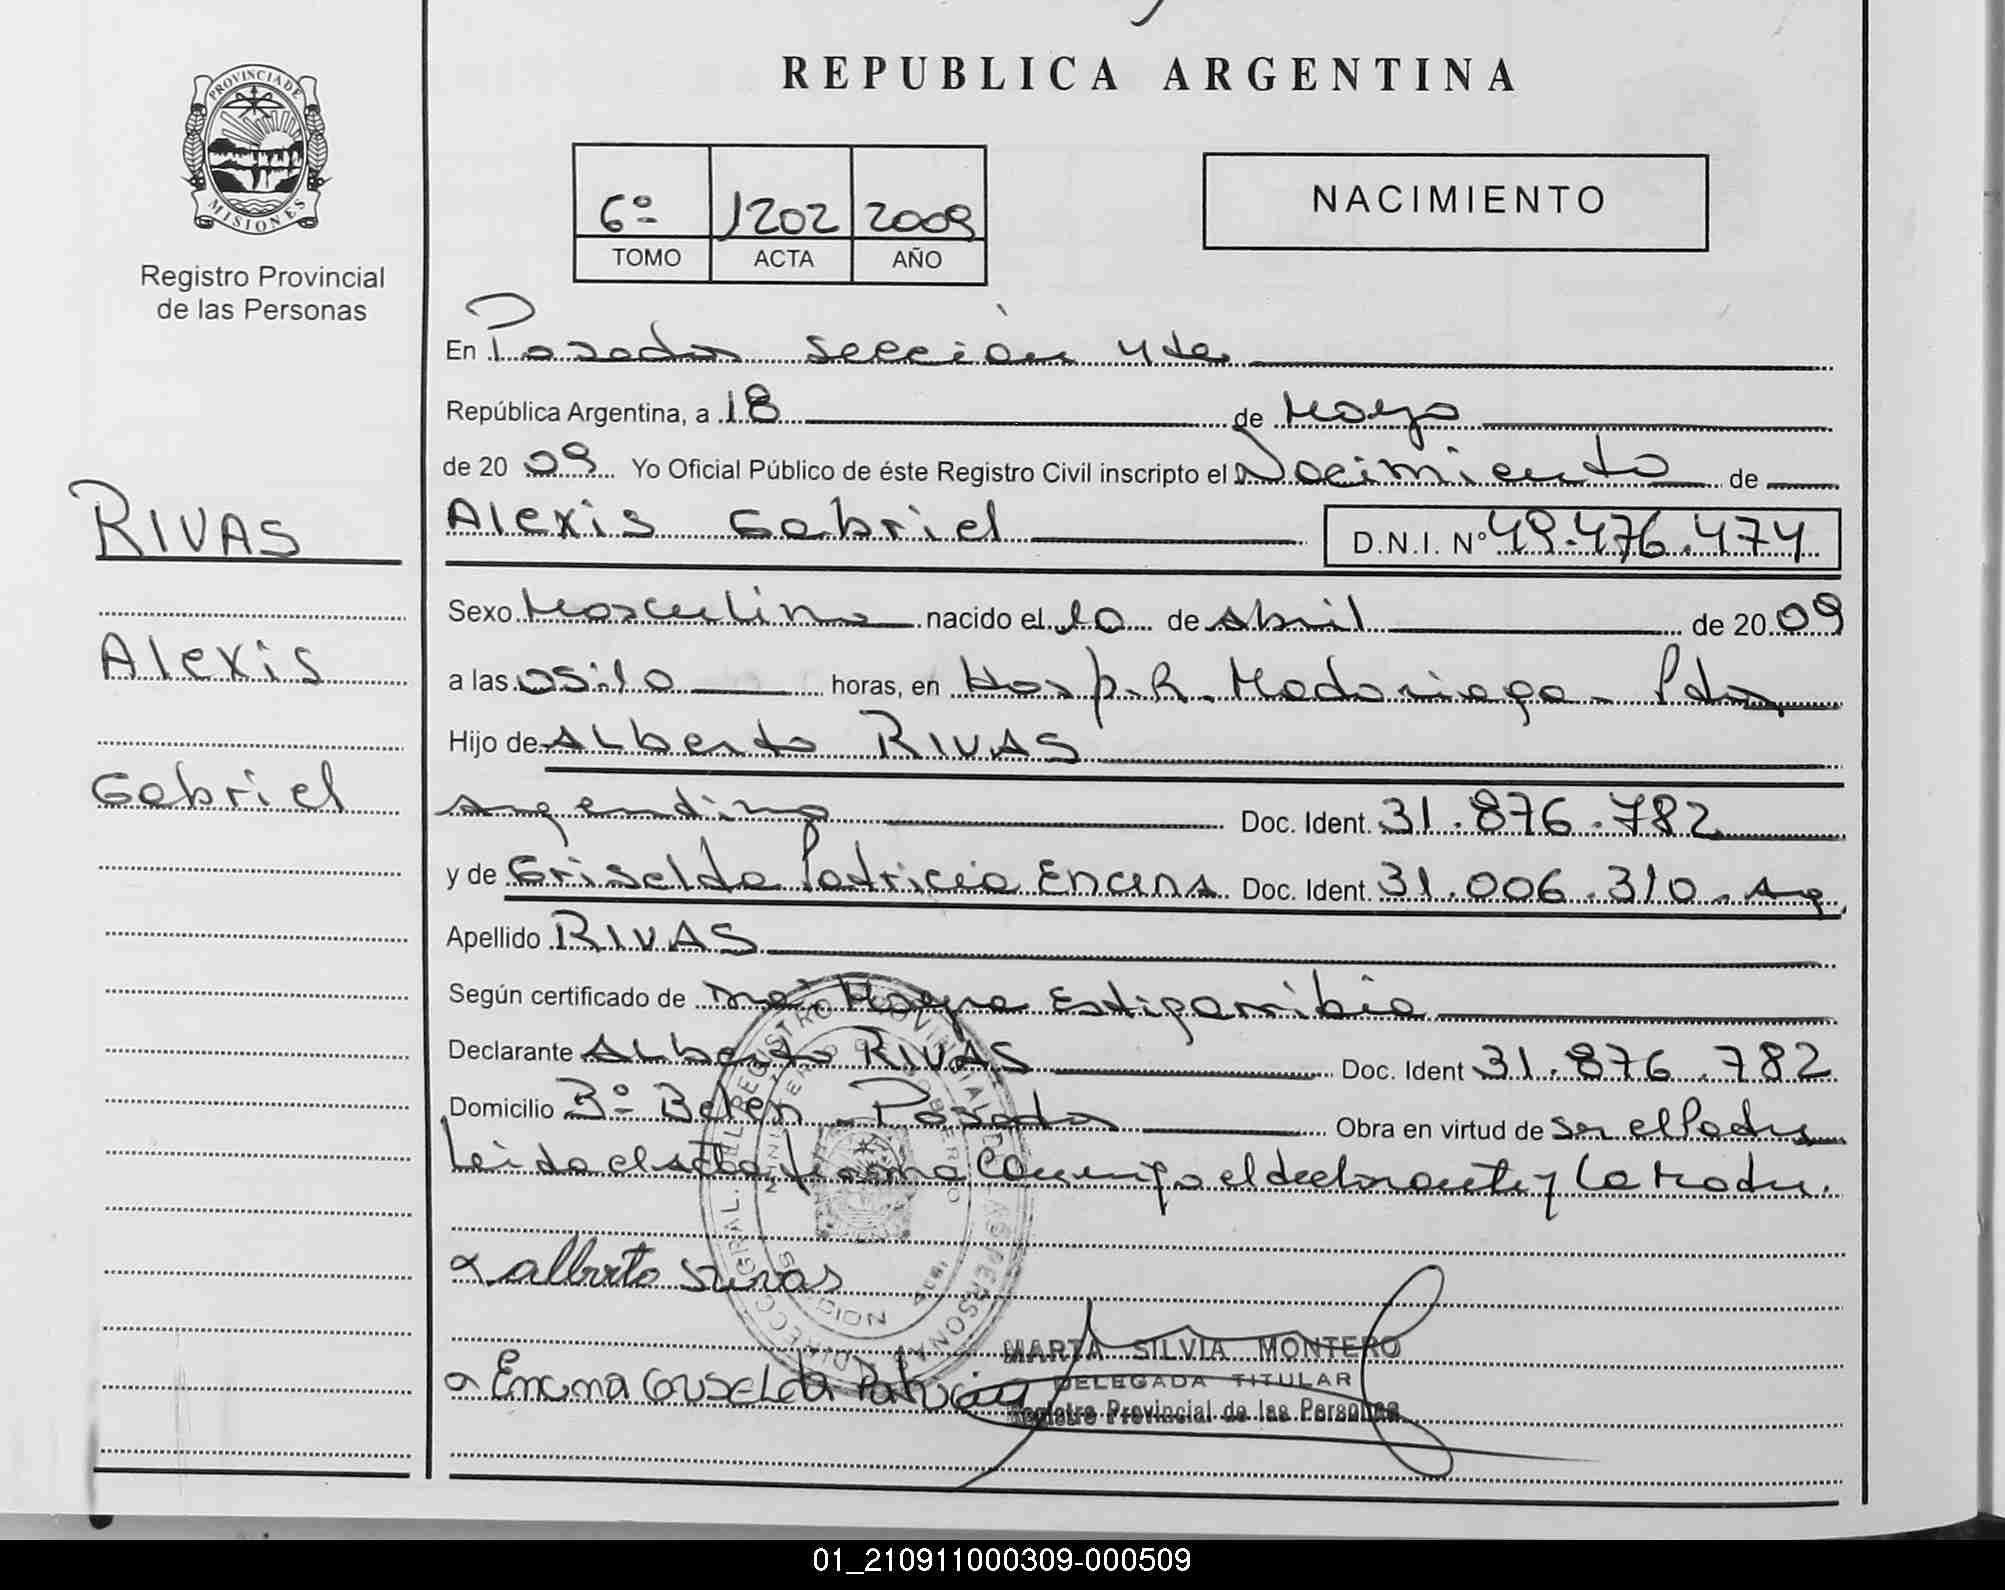 REPUBLICA ARGENTINA
PROVINCIA DE
MISIONES
Registro Provincial
de las Personas
6º 1202 2009
TOMO ACTA AÑO
NACIMIENTO
En Posadas sección 4ta
República Argentina, a 18 de Mayo
de 20 09 Yo Oficial Público de éste Registro Civil inscripto el Nacimiento de
RIVAS
Alexis Gabriel D.N.I. Nº 49.476.474
Sexo Masculino nacido el 10 de Abril de 20 09
Alexis
a las 05:10 horas, en Hosp. R. Madariaga - Pdas
Hijo de Alberto RIVAS
Gabriel
Argentino Doc. Ident. 31.876.782
y de Griselda Patricia Encina Doc. Ident. 31.006.310 - Arg.
Apellido RIVAS
Según certificado de Mayra Estigarribia
Declarante Alberto RIVAS Doc. Ident 31.876.782
Domicilio Bº Belen - Posadas Obra en virtud de Ser el Padre
Leida el acta firma Conmigo el declarante y la Madre.
alberto rivas
MARTA SILVIA MONTERO
Encina Griselda Patricia
DELEGADA TITULAR
Registro Provincial de las Personas
01_210911000309-000509